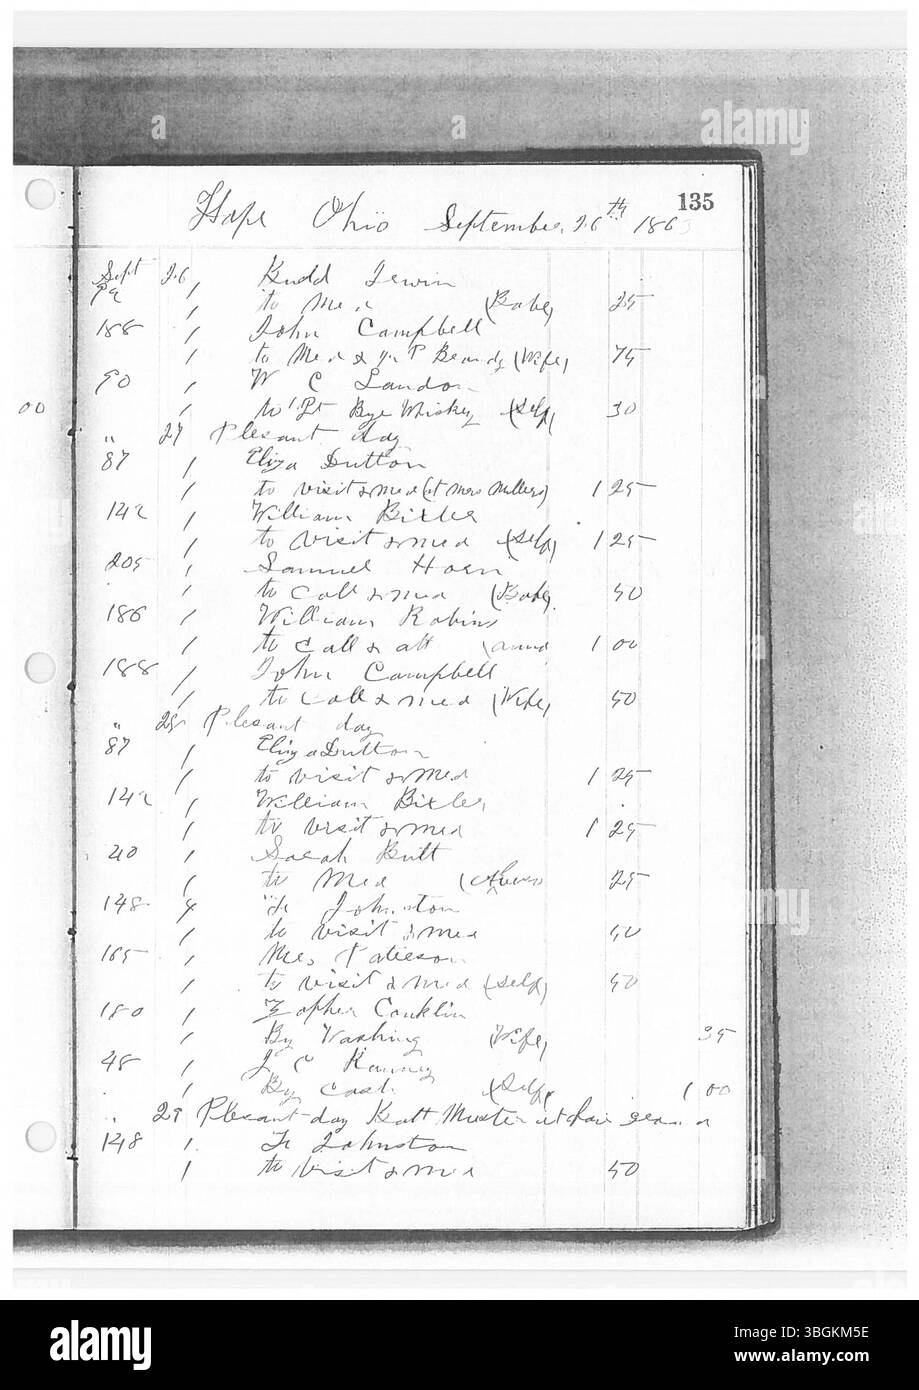 135
Hope Ohio September 26th 1863
Sept 26, Rudd Irwin
92 , to Med (Babe) 25
188 , John Campbell
, to Med & Brandy (Wife) 75
90 , W C Landon
00 , to 1 Pt Rye Whiskey (Self) 30
" 27 Plesant day
87 , Eliza Dutton
, to visit & med (at Mrs Millers) 1 25
142 , William Bixler
, to visit & med (Self) 1 25
205 , Samuel Horn
, to Call & med (Babe) 50
186 , William Robins
, to Call & att 1 00
188 , John Campbell
, to Call & med (Wife) 50
" 28 Plesant day
87 , Eliza Dutton
, to visit & med 1 25
142 , William Bixler
, to visit & med 1 25
40 , Sarah Butt
, to Med 25
148 Johnston
, to visit & med 50
165 , Mrs Patterson
, to visit & med (Self) 50
180 , Zopher Conklin
, By Washing (Wife) 35
48 , J C Ranney
, By Cash (Self) 1 00
" 29 Plesant day Batt Muster at
148 , Johnston
, to visit & med 50
alamy
a
a
a
alamy
Image ID: 3BGKM5E
www.alamy.com